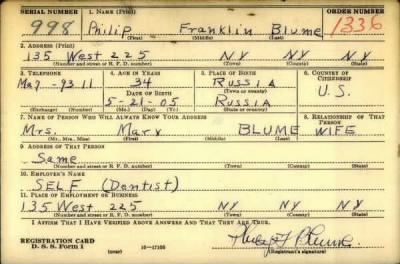 SERIAL NUMBER 1. NAME (Print) ORDER NUMBER
998 Philip Franklin Blume 1336
(First) (Middle) (Last)
2. ADDRESS (Print)
135 West 225 NY NY
(Number and street or R. F. D. number) (Town) (County) (State)
3. TELEPHONE 4. AGE IN YEARS 5. PLACE OF BIRTH 6. COUNTRY OF CITIZENSHIP
34 RUSSIA
DATE OF BIRTH (Town or county)
Mar -9311 5-21-05 RUSSIA U.S.
(Exchange) (Number) (Mo.) (Day) (Yr.) (State or country)
7. NAME OF PERSON WHO WILL ALWAYS KNOW YOUR ADDRESS 8. RELATIONSHIP OF THAT PERSON
Mrs. Mary BLUME WIFE
(Mr., Mrs., Miss) (First) (Middle) (Last)
9. ADDRESS OF THAT PERSON
Same
(Number and street or R. F. D. number) (Town) (County) (State)
10. EMPLOYER'S NAME
SELF (Dentist)
11. PLACE OF EMPLOYMENT OR BUSINESS
135 West 225 NY NY NY
(Number and street or R. F. D. number) (Town) (County) (State)
I AFFIRM THAT I HAVE VERIFIED ABOVE ANSWERS AND THAT THEY ARE TRUE.
REGISTRATION CARD
D. S. S. Form 1 (over) 16—17105 (Registrant's signature)